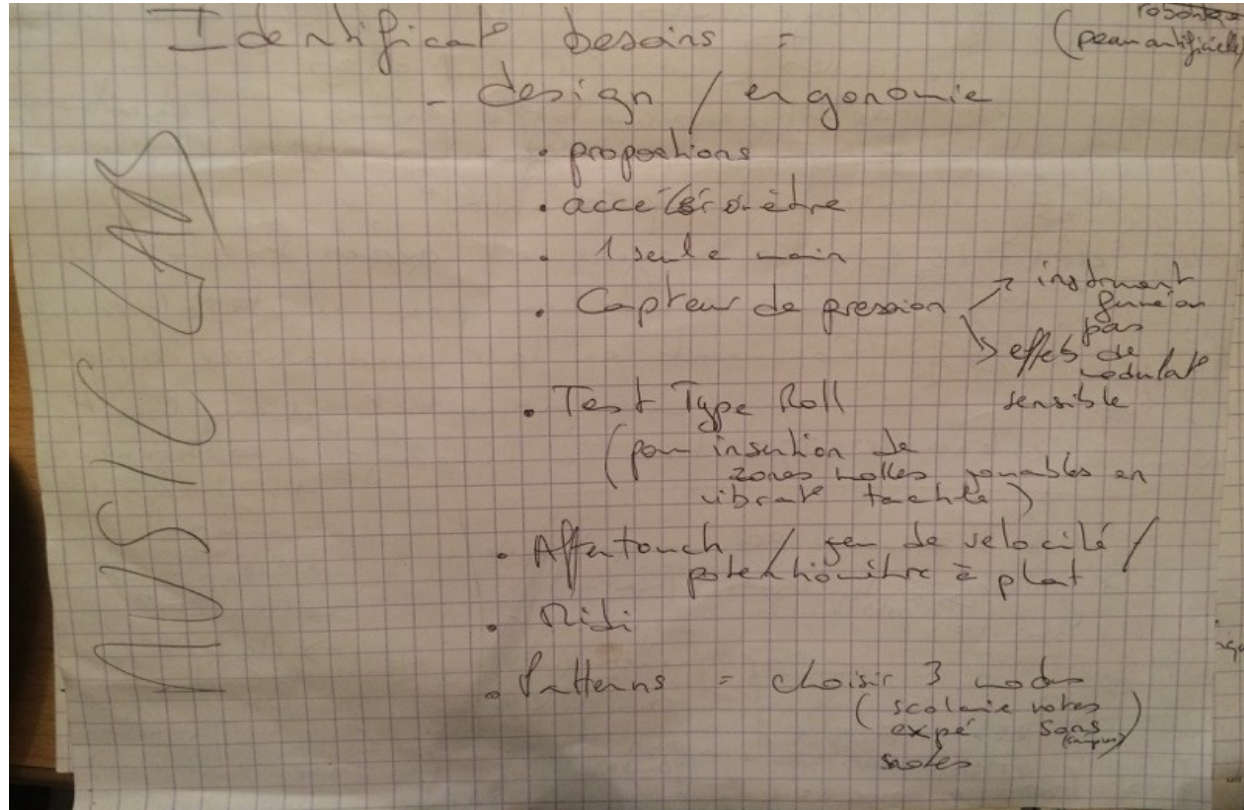 Identificat° besoins =
robotique
(peau artificielle)
- design / ergonomie
• proportions
• accéléromètre
• 1 seule main
• Capteur de pression
instrument
pas
effets de
modulat°
sensible
• Test Type Roll
(pour insertion de
zones molles jouables en
vibrat° tactile)
• Aftertouch / jeu de velocité /
potentiomètre à plat
• Midi
• Patterns = choisir 3 modes
(scolaire notes
expé sons
MUSIC LAB